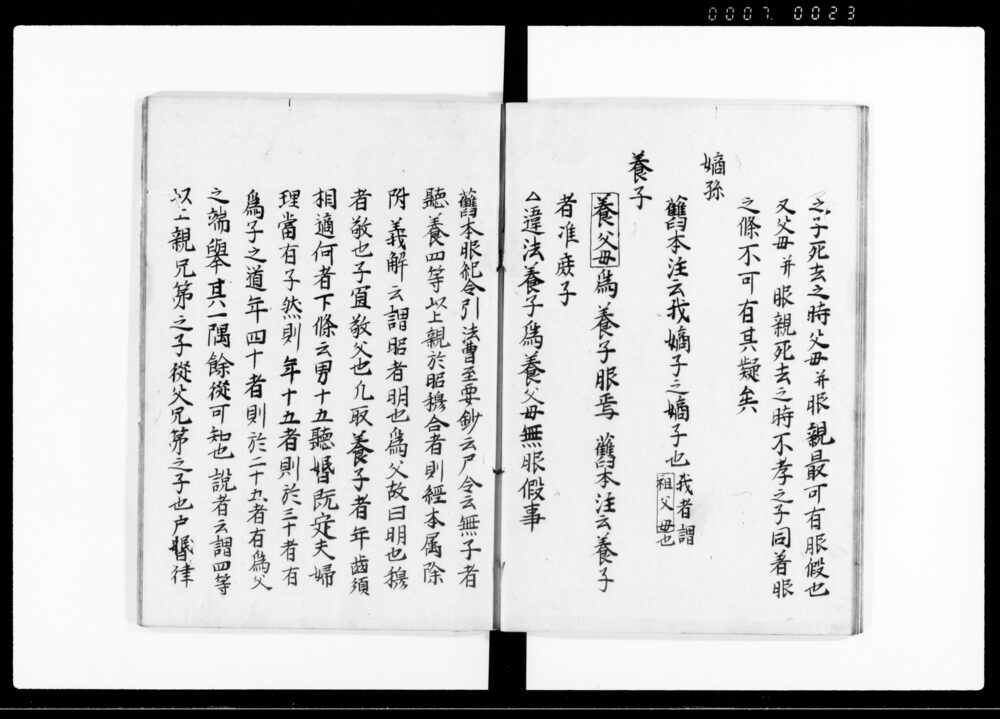 0007. 0023
之子死去之時父母并服親最可有服假也
又父母并服親死去之時不孝之子同着服
之條不可有其疑矣
嫡孫
舊本注云我嫡子之嫡子也 我者謂祖父母也
養子
養父母爲養子服焉 舊本注云養子
者准庶子
△違法養子爲養父母無服假事
舊本服紀令引法曹至要鈔云戸令云無子者
聽養四等以上親於昭穆合者則經本属除
附義解云謂昭者明也爲父故曰明也穆
者敬也子宜敬父也凡取養子者年齒須
相適何者下條云男十五聽婚既定夫婦
理當有子然則年十五者則於三十者有
爲子之道年四十者則於二十五者有爲父
之端舉其一隅餘從可知也説者云謂四等
以上親兄第之子從父兄第之子也戸婚律